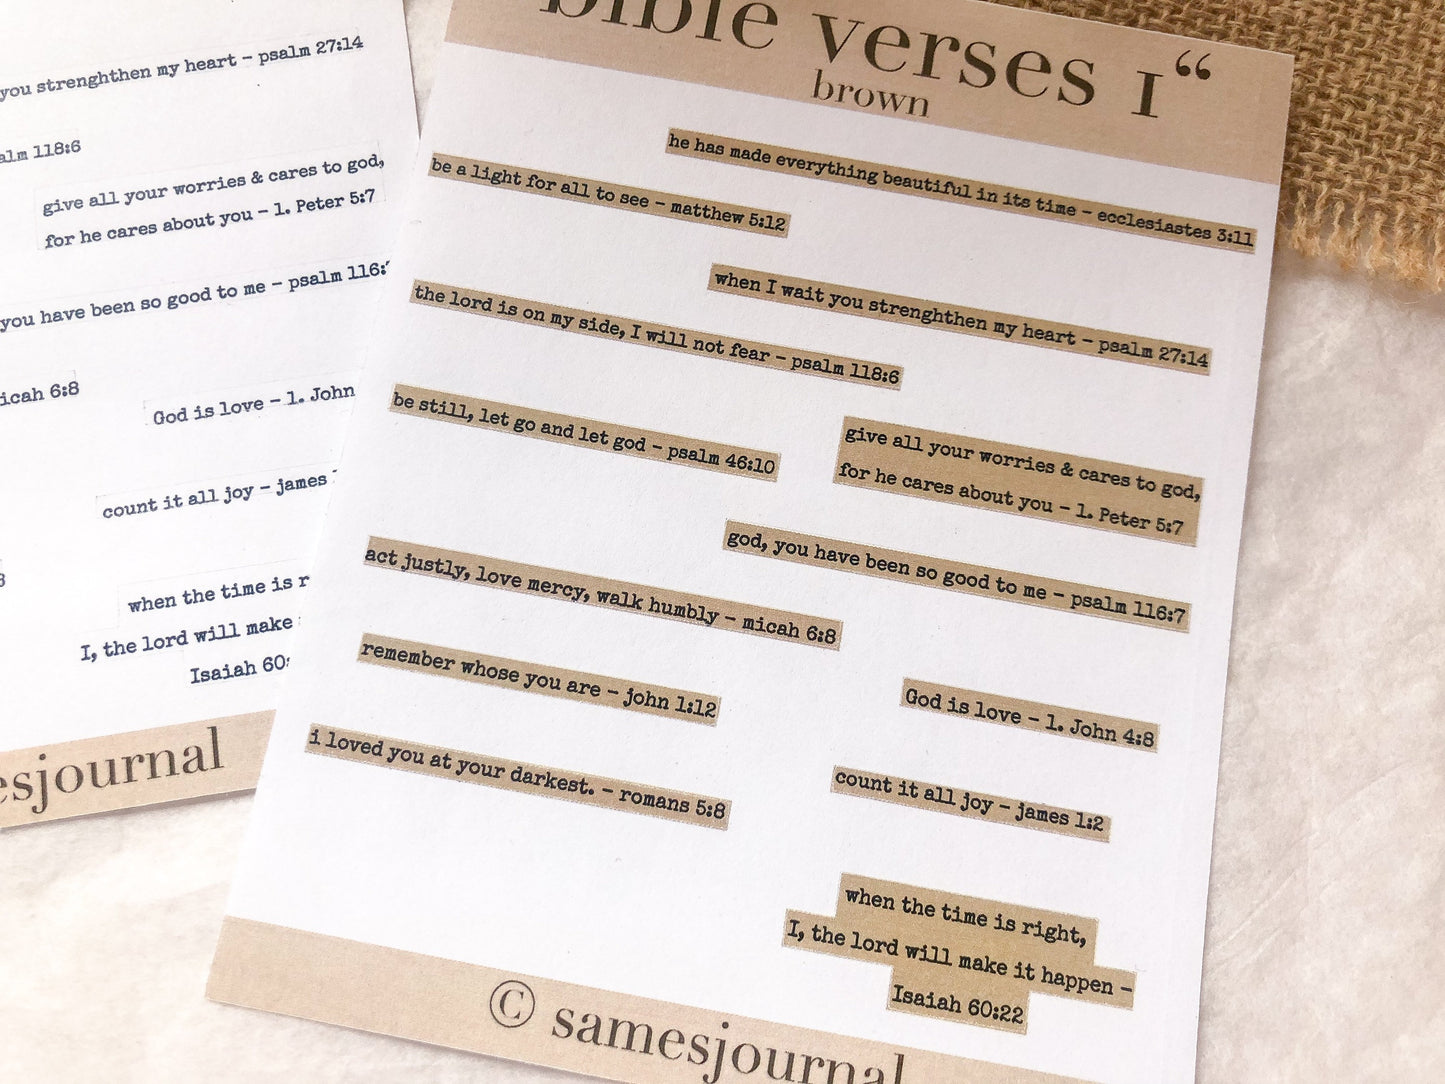 you strenghthen my heart – psalm 27:14
118:6
give all your worries & cares to god,
for he cares about you – 1. Peter 5:7
you have been so good to me – psalm 116:7
micah 6:8
God is love – 1. John
count it all joy – james
when the time is r
I, the lord will make
Isaiah 60:
esjournal
bible verses 1“
brown
he has made everything beautiful in its time – ecclesiastes 3:11
be a light for all to see – matthew 5:12
when I wait you strenghthen my heart – psalm 27:14
the lord is on my side, I will not fear – psalm 118:6
be still, let go and let god – psalm 46:10
give all your worries & cares to god,
for he cares about you – 1. Peter 5:7
god, you have been so good to me – psalm 116:7
act justly, love mercy, walk humbly – micah 6:8
remember whose you are – john 1:12
God is love – 1. John 4:8
i loved you at your darkest. – romans 5:8
count it all joy – james 1:2
when the time is right,
I, the lord will make it happen –
Isaiah 60:22
© samesjournal